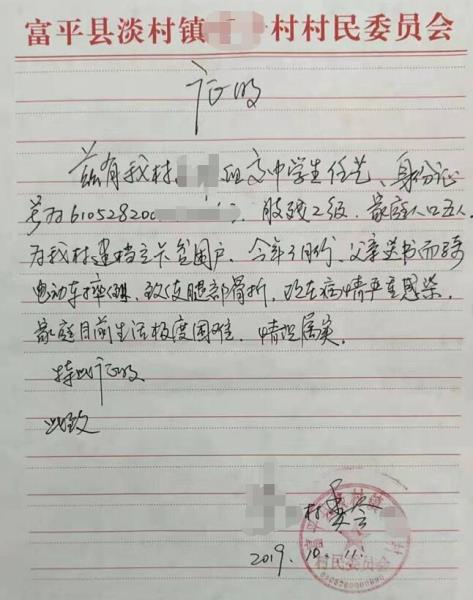 富平县淡村镇 村村民委员会
证明
兹有我村 组高中学生任艺、身份证
号为610528200 . 肢残2级. 家庭人口五人
为我村建档立卡贫困户. 今年3月份、父亲 而骑
电动车摔倒. 致 腿部骨折, 现在病情严重感染.
家庭目前生活极度困难. 情况属实.
特此证明
此致
村委会
2019.10.11.
富平县淡村镇 村
村民委员会